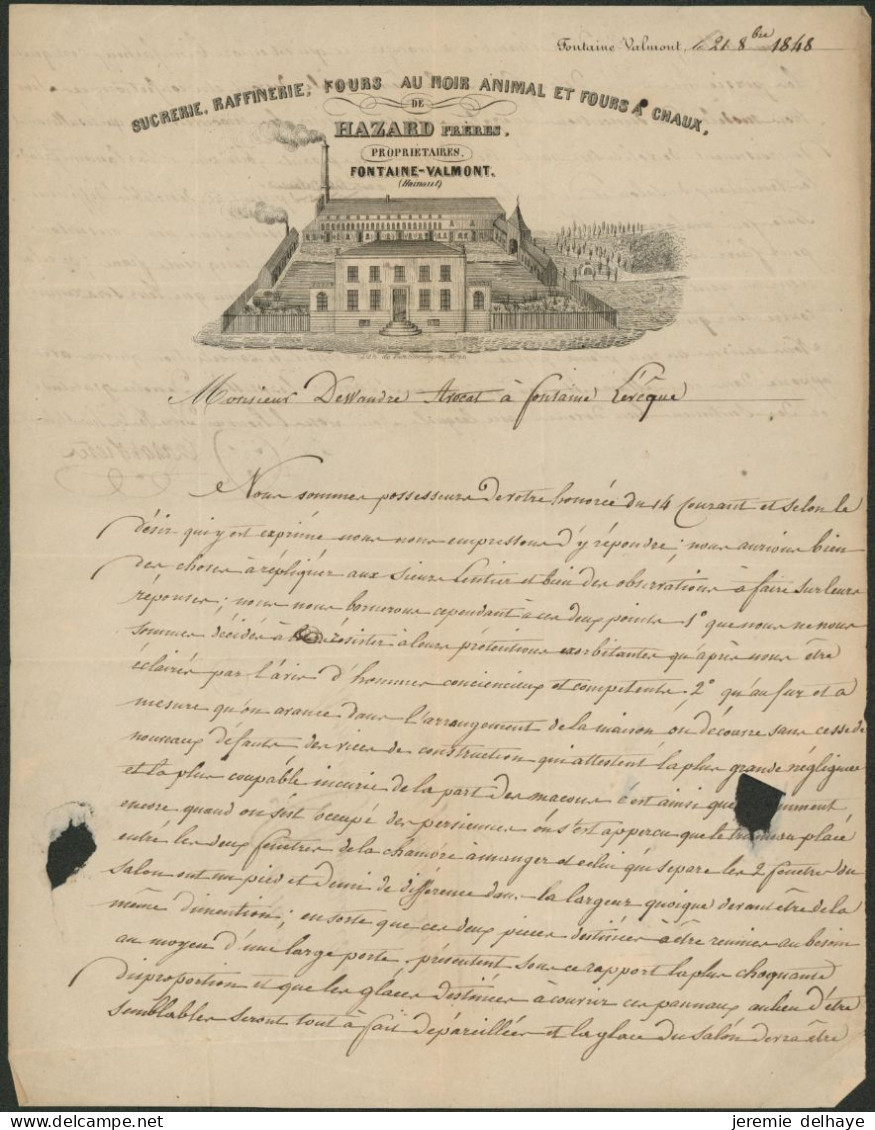 Fontaine Valmont, le 21 8bre 1848
SUCRERIE, RAFFINERIE, FOURS AU NOIR ANIMAL ET FOURS A CHAUX,
DE
HAZARD FRÈRES,
PROPRIETAIRES,
FONTAINE-VALMONT.
(Hainaut)
Monsieur Dewandre Avocat à Fontaine L'evêque
Nous sommes possesseurs de votre honorée du 14 Courant et selon le
désir qui y est exprimé nous nous empressons d'y répondre; nous aurions bien
des choses à répliquer aux sieurs Lintier et bien des observations à faire sur leurs
réponses; nous nous bornerons cependant à ces deux points 1° que nous ne nous
sommes décidés à résister à leurs prétentions exorbitantes qu'après nous être
éclairés par l'avis d'hommes conciencieux et competents. 2° qu'au fur et a
mesure qu'on avance dans l'arrangement de la maison on découvre sans cesse de
nouveaux défauts des vices de construction qui attestent la plus grande négligence
et la plus coupable incurie de la part des macons c'est ainsi que
encore quand on s'est occupé des persiennes on s'est apperçu que le trumeau placé
entre les deux fenêtres de la chambre à manger et celui qui separe les 2 fenêtres du
salon ont un pied et demi de différence dans la largeur quoique devant être de la
même dimention; en sorte que ces deux pièces destinées à être reunies au besoin
au moyen d'une large porte, présentent sous ce rapport la plus choquante
disproportion et que les glâces destinées à couvrir ces pannaux au lieu d'être
semblables seront tout à fait dépareillées et la glace du salon devra être
jeremie delhaye